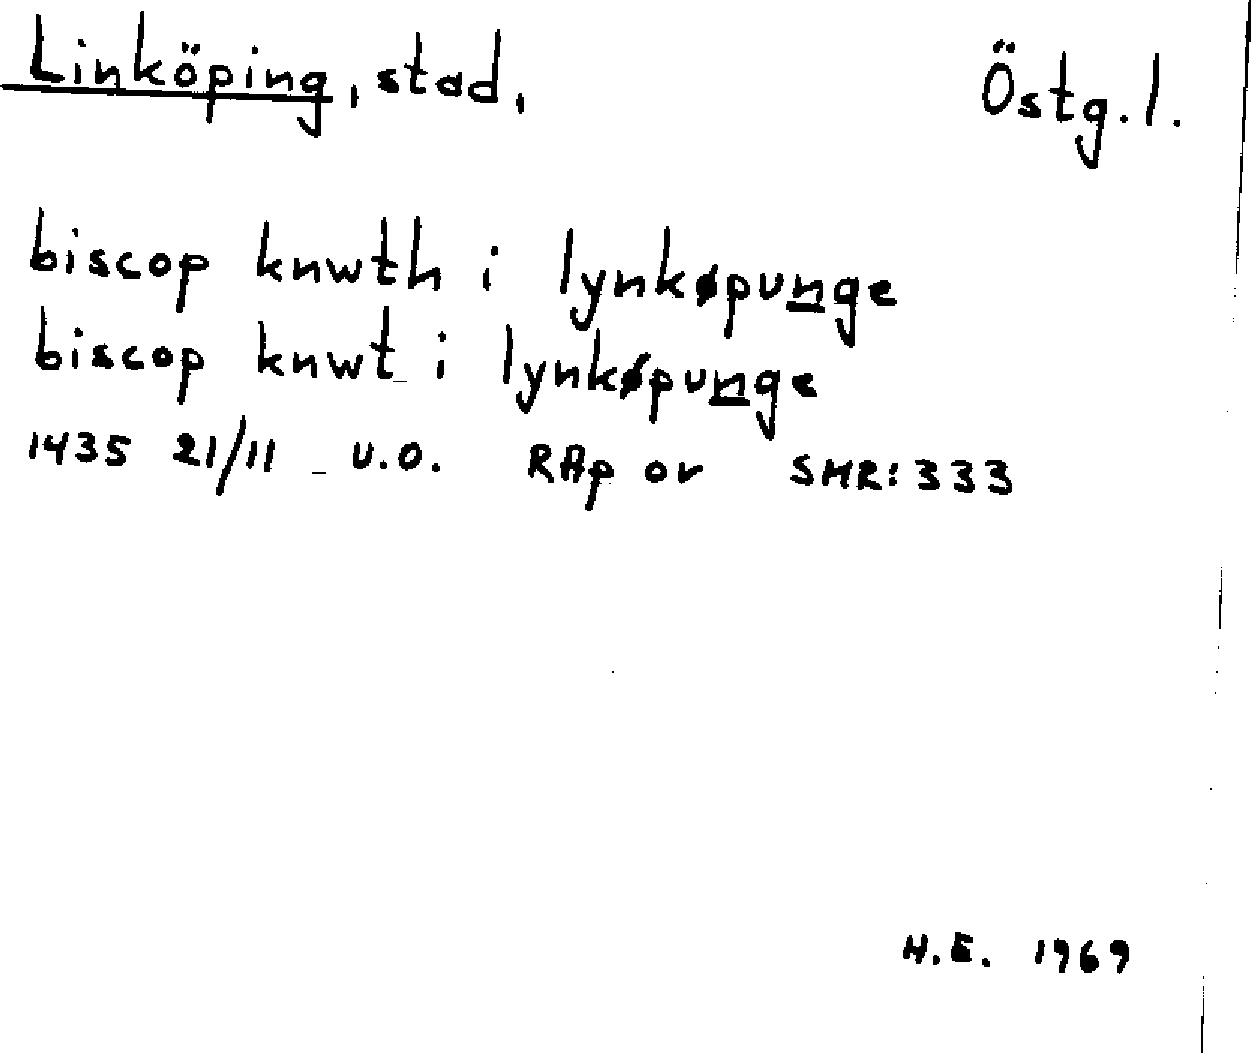 Linköping, stad. Östg. l.
biscop knwth i lynkøpunge
biscop knwt i lynkøpunge
1435 21/11 _ U.O. RAp or SMR:333
H.E. 1969